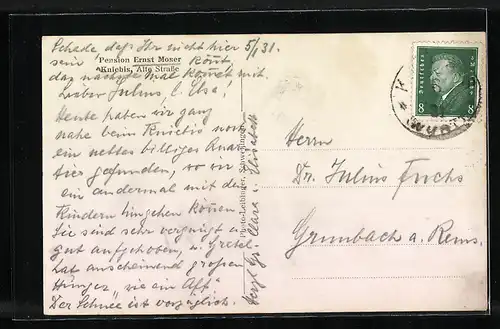 Schade, daß Ihr nicht hier 5/1 31.
sein könnt,
Pension Ernst Moser
Kniebis, Alte Straße
das nächste Mal kommt mit.
Lieber Julius & Elsa!
Heute haben wir ganz
nahe beim Kniebis noch
ein nettes billiges Quar-
tier gefunden, wo wir
ein andermal mit den
Kindern hingehen können.
Sie sind sehr vergnügt u.
gut aufgehoben, u. Gretel
hat anscheinend großen
Hunger, "wie ein Aff"
Der Schnee ist vorzüglich.
Clara u. Elisabeth
Photo-Leibinger, Schwenningen
Deutsches Reich
8 8
WÜRTT
Herrn
Dr. Julius Fuchs
Grunbach a. Rems.